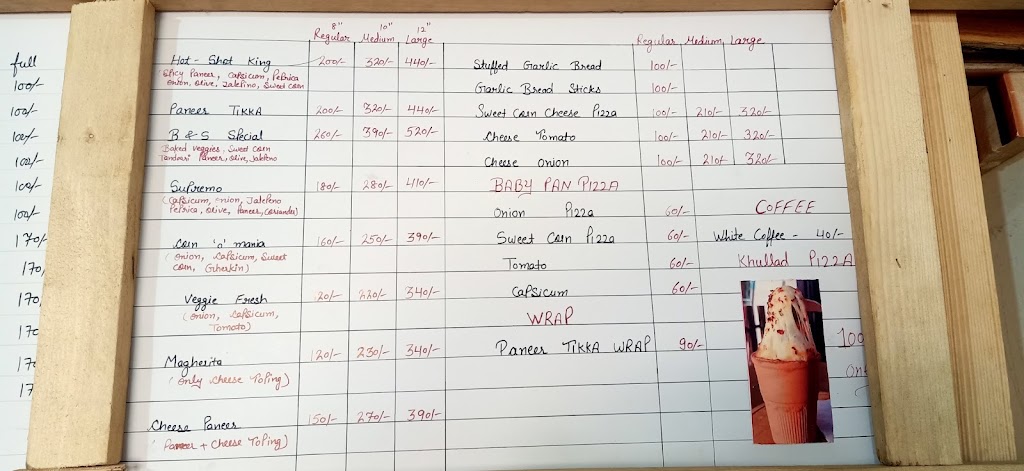 full
100/-
100/-
100/-
100/-
100/-
100/-
170/-
170/
170
170
170
17
8" 10" 12"
Regular Medium Large
Hot - Shot King 200/- 320/- 440/-
Spicy Paneer, Capsicum, Peprica
Onion, Olive, Jalepino, Sweet corn
Paneer TIKKA 200/- 320/- 440/-
B & S Special 260/- 390/- 520/-
Baked veggies, Sweet corn
Tandoori Paneer, olive, Jalepeno
Supremo 180/- 280/- 410/-
(Capsicum, onion, Jalepeno
Peprica, olive, Paneer, Coriander)
Corn 'o' mania 160/- 250/- 390/-
(onion, Capsicum, Sweet
corn, Gherkin)
Veggie Fresh 120/- 220/- 340/-
(onion, Capsicum,
Tomato)
Magherita 120/- 230/- 340/-
(only cheese Toping)
Cheese Paneer 150/- 270/- 390/-
(Paneer + Cheese Toping)
Regular Medium Large
Stuffed Garlic Bread 100/-
Garlic Bread Sticks 100/-
Sweet Corn Cheese Pizza 100/- 210/- 320/-
Cheese Tomato 100/- 210/- 320/-
Cheese onion 100/- 210/- 320/-
BABY PAN PIZZA
Onion Pizza 60/-
Sweet Corn Pizza 60/-
Tomato 60/-
Capsicum 60/-
WRAP
Paneer TIKKA WRAP 90/-
COFFEE
White Coffee - 40/-
Khullad PIZZA
100